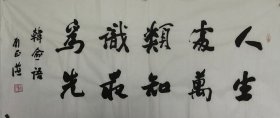 人生
處萬
類知
識最
為先
韓愈語